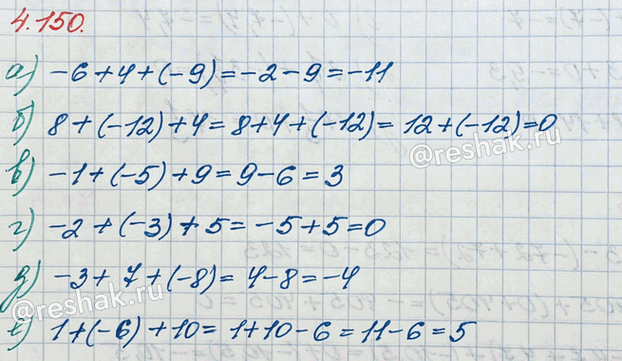 4.150.
а) -6+4+(-9)=-2-9=-11
б) 8+(-12)+4=8+4+(-12)=12+(-12)=0
@reshak.ru
в) -1+(-5)+9=9-6=3
г) -2+(-3)+5=-5+5=0
д) -3+7+(-8)=4-8=-4
@reshak.ru
е) 1+(-6)+10=1+10-6=11-6=5